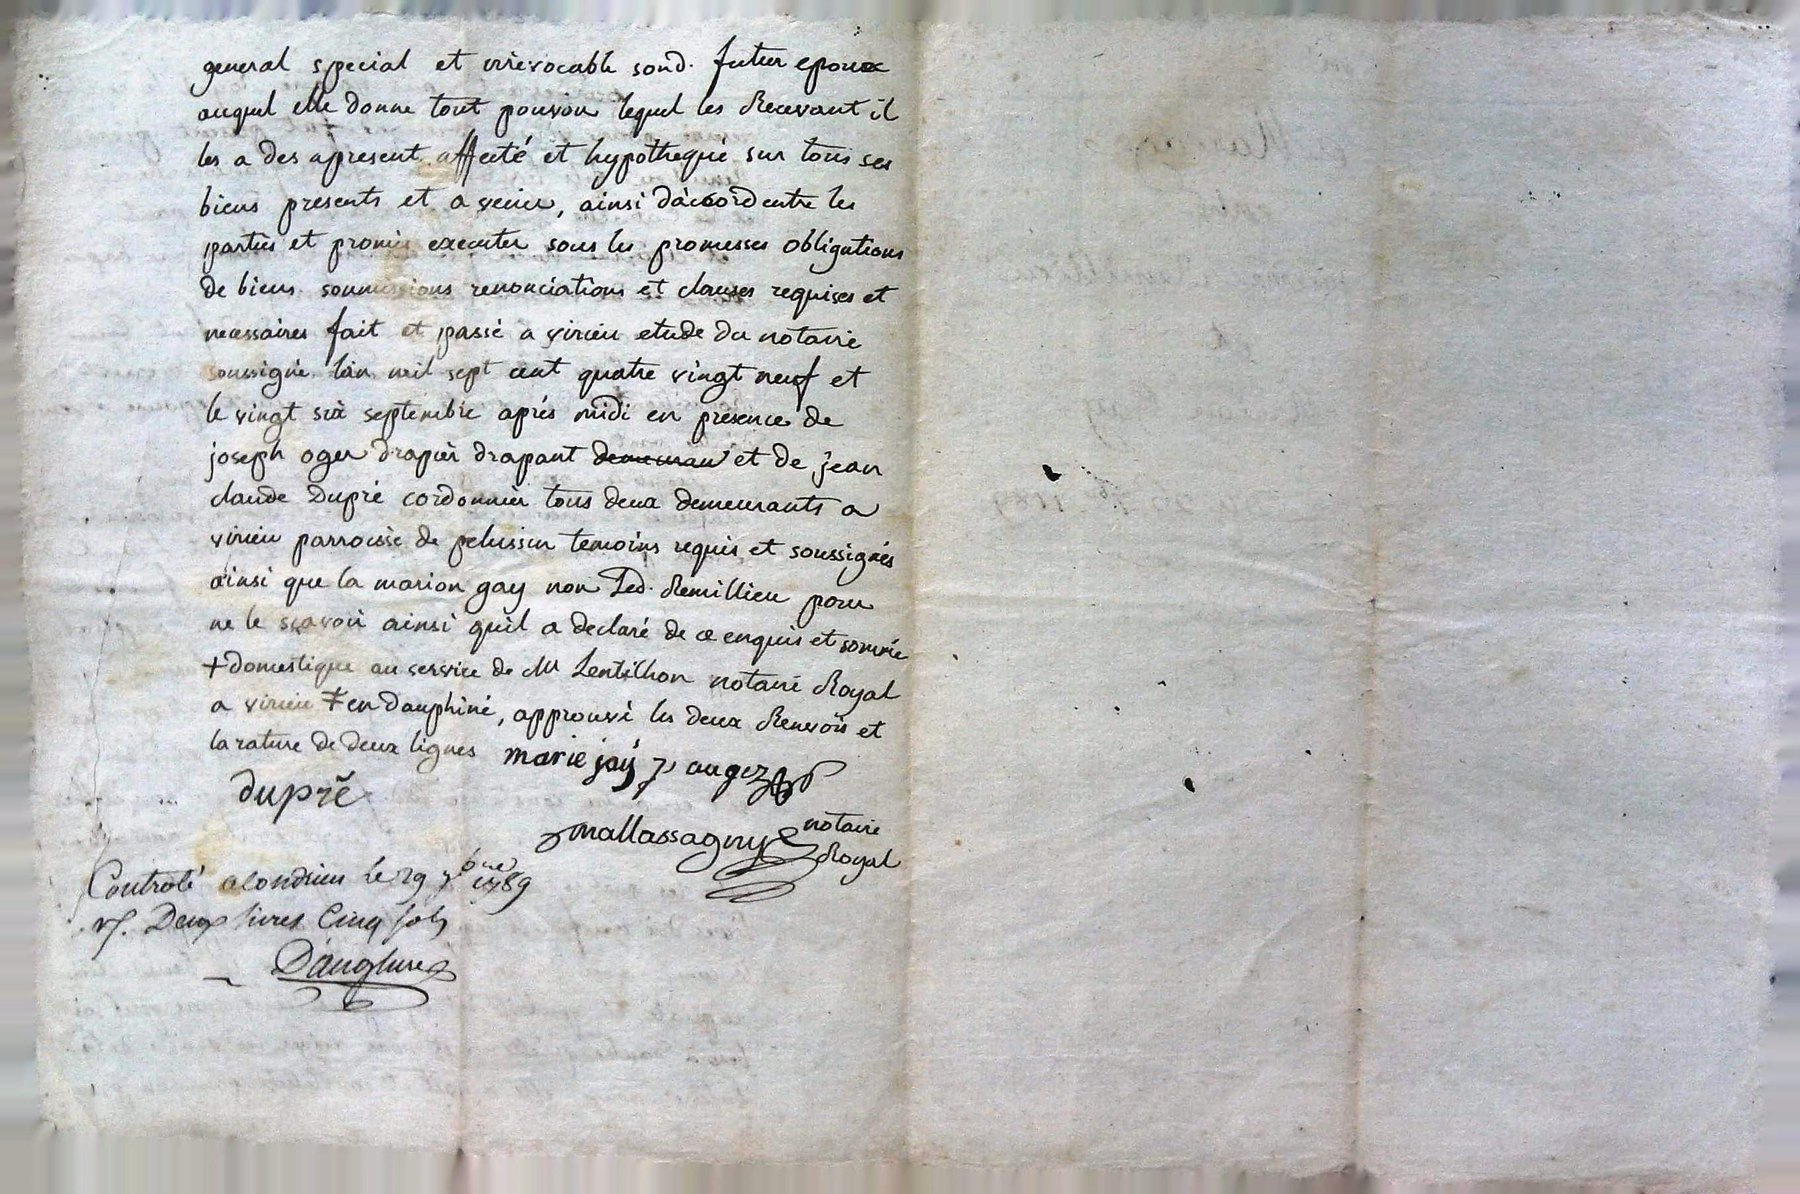 general special et irrevocable sond. futur epoux
auquel elle donne tout pouvoir lequel les Recevant il
les a des apresent affecté et hypothequé sur tous ses
biens presents et a venir, ainsi d'accord entre les
parties et promis executer sous les promesses obligations
de biens soumissions renonciations et clauses requises et
necessaires fait et passé a virieu etude du notaire
soussigné l'an mil sept cent quatre vingt neuf et
le vingt six septembre aprés midi en presence de
joseph oger drapier drapant et de jean
claude Dupré cordonnier tous deux demeurants a
virieu parroisse de pelussin temoins requis et soussignés
ainsi que la marion gay non Led. Remillieu pour
ne le sçavoir ainsi qu'il a declaré de ce enquis et sommé
+ domestique au service de Mr Lentillon notaire Royal
a virieu ≠ en dauphiné, approuvé les deux Renvois et
la rature de deux lignes marie jay j augez
dupré
mallassagny notaire
Royal
Controlé a Condrieu le 29 7bre 1789
rs. Deux livres Cinq sols
D'anglure